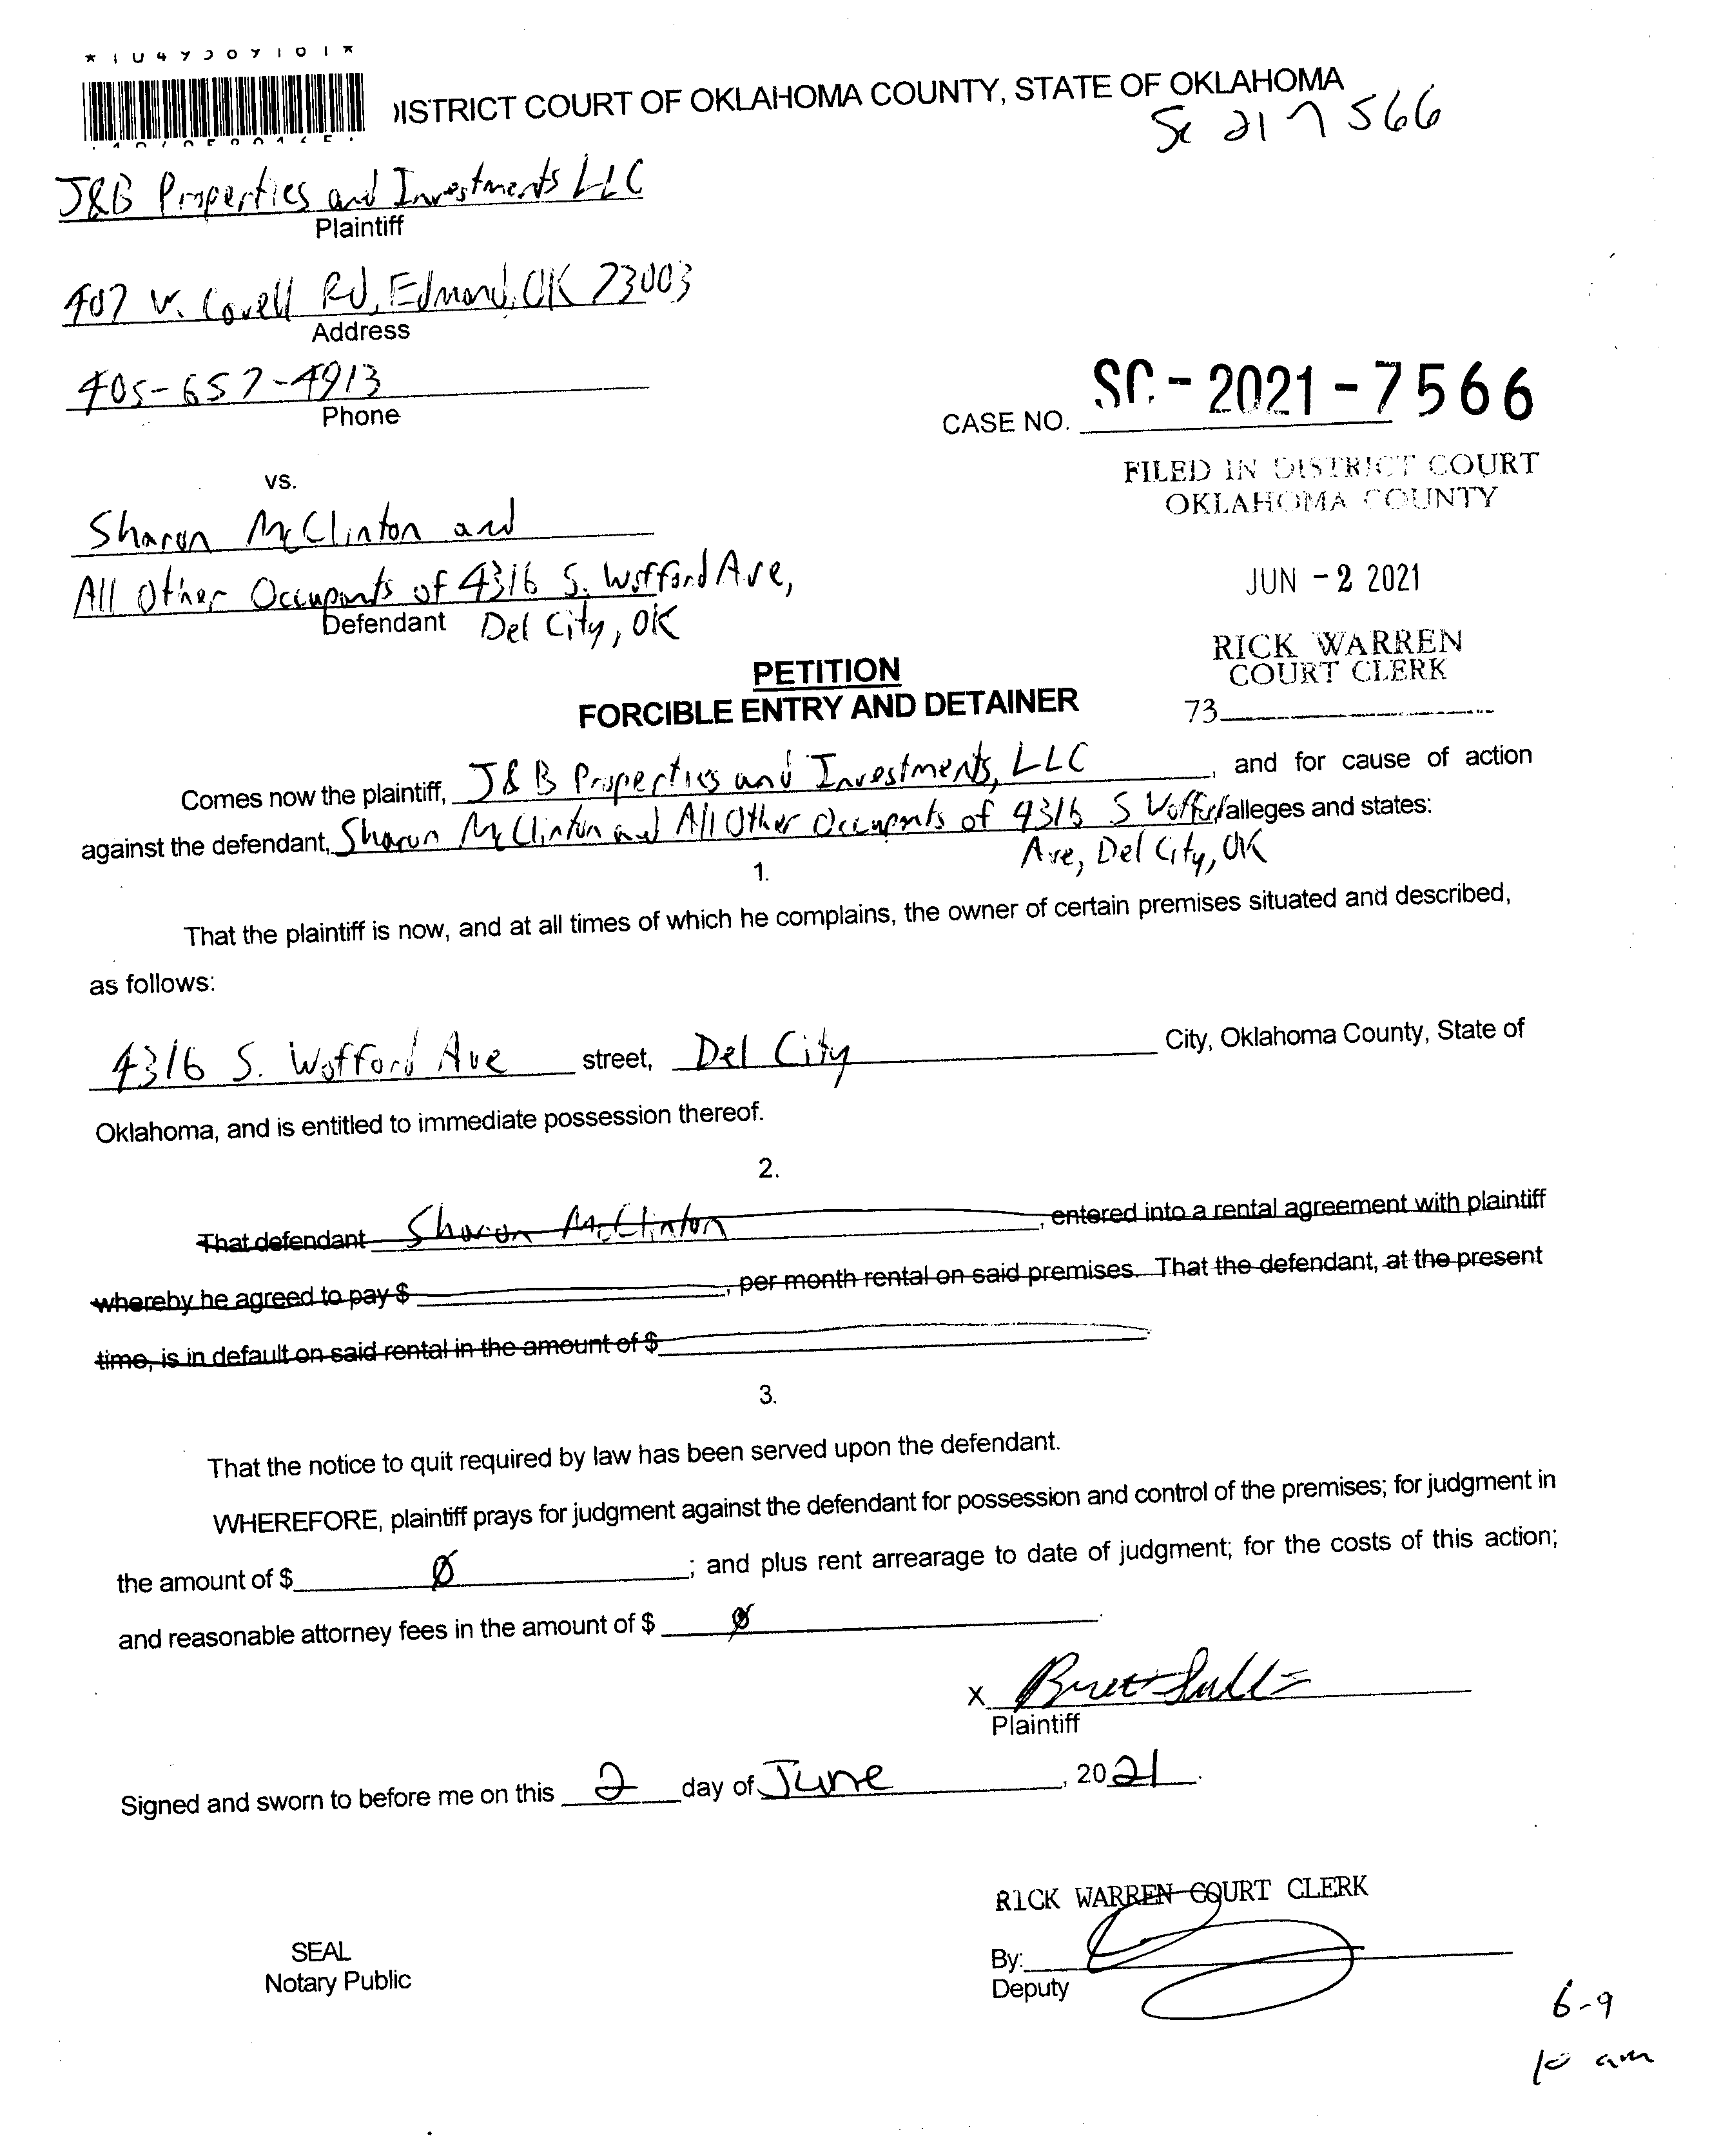 DISTRICT COURT OF OKLAHOMA COUNTY, STATE OF OKLAHOMA
SC 21 7566
J&B Properties and Investments LLC
Plaintiff
407 W. Covell Rd, Edmond, OK 73003
Address
405-657-4913
Phone
CASE NO. SC-2021-7566
FILED IN DISTRICT COURT
OKLAHOMA COUNTY
vs.
Sharon McClinton and
All Other Occupants of 4316 S. Wofford Ave,
Defendant Del City, OK
JUN -2 2021
RICK WARREN
COURT CLERK
73
PETITION
FORCIBLE ENTRY AND DETAINER
Comes now the plaintiff, J&B Properties and Investments, LLC, and for cause of action
against the defendant, Sharon McClinton and All Other Occupants of 4316 S Wofford alleges and states:
Ave, Del City, OK
1.
That the plaintiff is now, and at all times of which he complains, the owner of certain premises situated and described,
as follows:
4316 S. Wofford Ave street, Del City City, Oklahoma County, State of
Oklahoma, and is entitled to immediate possession thereof.
2.
That defendant Sharon McClinton, entered into a rental agreement with plaintiff
whereby he agreed to pay $, per month rental on said premises. That the defendant, at the present
time, is in default on said rental in the amount of $
3.
That the notice to quit required by law has been served upon the defendant.
WHEREFORE, plaintiff prays for judgment against the defendant for possession and control of the premises; for judgment in
the amount of $ 0; and plus rent arrearage to date of judgment; for the costs of this action;
and reasonable attorney fees in the amount of $ 0.
X
Plaintiff
Signed and sworn to before me on this 2 day of June, 2021.
RICK WARREN COURT CLERK
SEAL
Notary Public
By:
Deputy
6-9
10 am